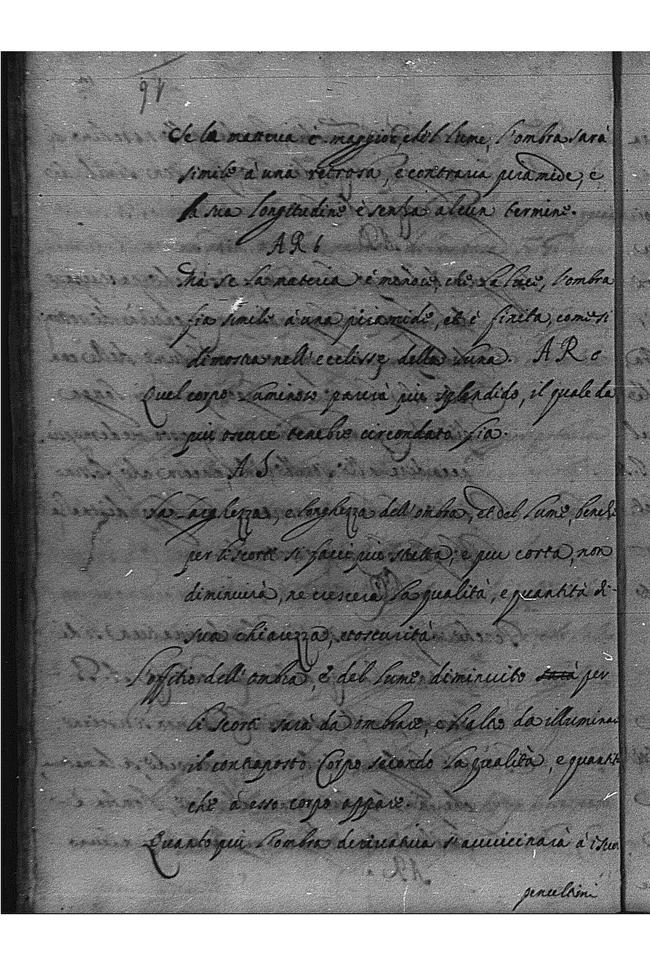 94
Se la materia è maggior, chel lume, l'ombra sarà
simile à una retrosa, e contraria piramide, e
la sua longitudine è senza alcun termine.
A R 6
Mà se la materia è menore, che la luce, l'ombra
fia simile à una piramide, et è finita, come si
dimostra nell'eclisse della luna. A R 6
Quel corpo luminoso parerà più splendido, il quale da
più oscure tenebre circondato fia.
A
La larghezza, e longhezza dell'ombra, et del lume, benche
per li scorti si facci più stretta, e piu corta, non
diminuirà, ne crescerà la qualità, e quantità di
sua chiarezza, et oscurità
L'offitio dell'ombra, e del lume diminuito sarà per
li scorti sarà da ombrare, e l'altro da illuminar
il contraposto Corpo secondo la qualità, e quantit
che à esso corpo appare.
Quanto più l'ombra derivativa s'avvicinarà à i suoi
penultimi